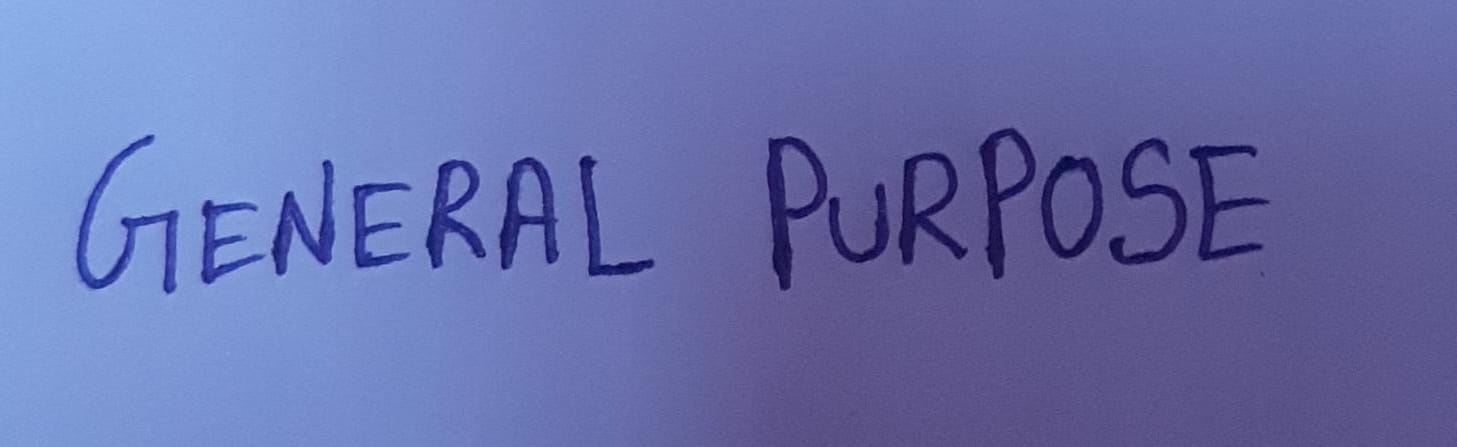 GENERAL PURPOSE